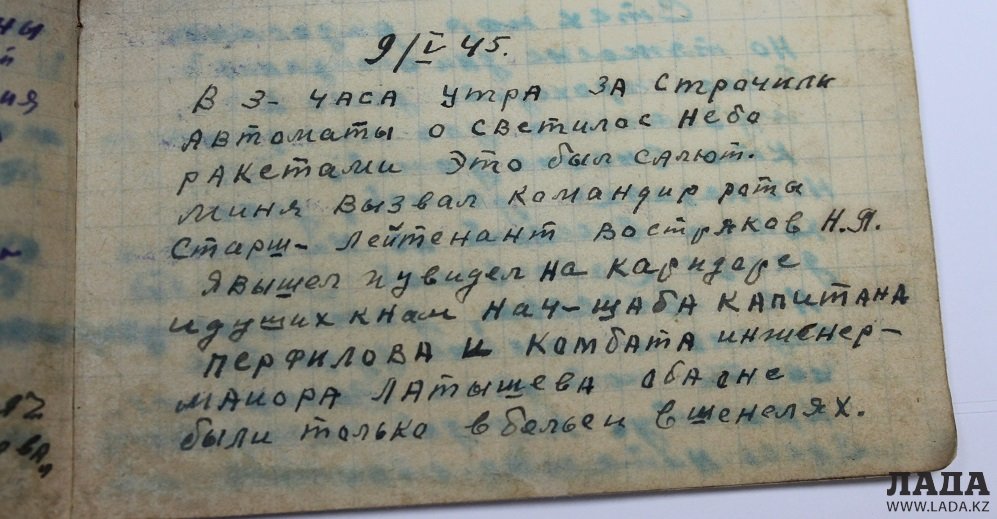 9/V 45.
В 3- часа утра за строчили
автоматы о светилос небо
ракетами это был салют.
миня вызвал командир роты
Старш- лейтенант востряков Н.Я.
Я вышел и увидел на каридоре
идуших кнам нач-щаба капитана
перфилова и комбата инженер-
маиора латышева оба оне
были только в белье и в шенелях.
ны
й
ия
12
ова,
ЛАДА
WWW.LADA.KZ